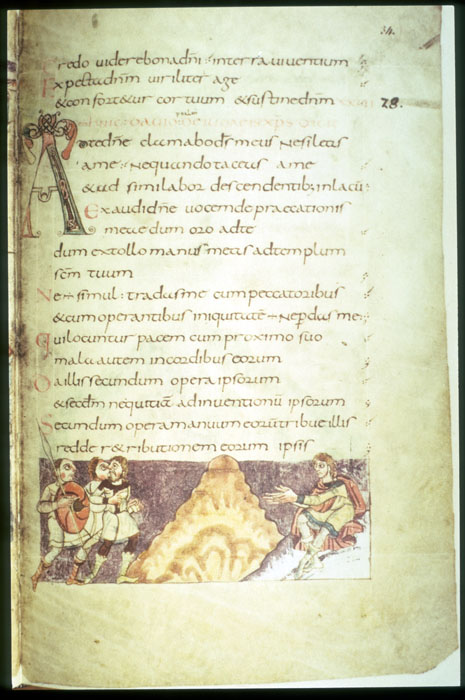 34.
Credo videre bona dñi · in terra viventium
Expecta dnm viriliter age
& confort&ur cor tuum & sustine dnm
28.
Ad te dne clamabo ds meus Ne sileas
a me · Nequando taceas a me
& ad similabor descendentib; in lacu
Exaudi dne vocem depraecationis
meae dum oro ad te
dum extollo manus meas ad templum
scm tuum
Ne simul tradas me cum peccatoribus
& cum operantibus iniquitate Ne perdas me
qui locuntur pacem cum proximo suo
mala autem in cordibus eorum
Da illis secundum opera ipsorum
& secdm nequitiā adinventionū ipsorum
Secundum opera manuum eorū tribue illis
redde r&ributionem eorum ipsis